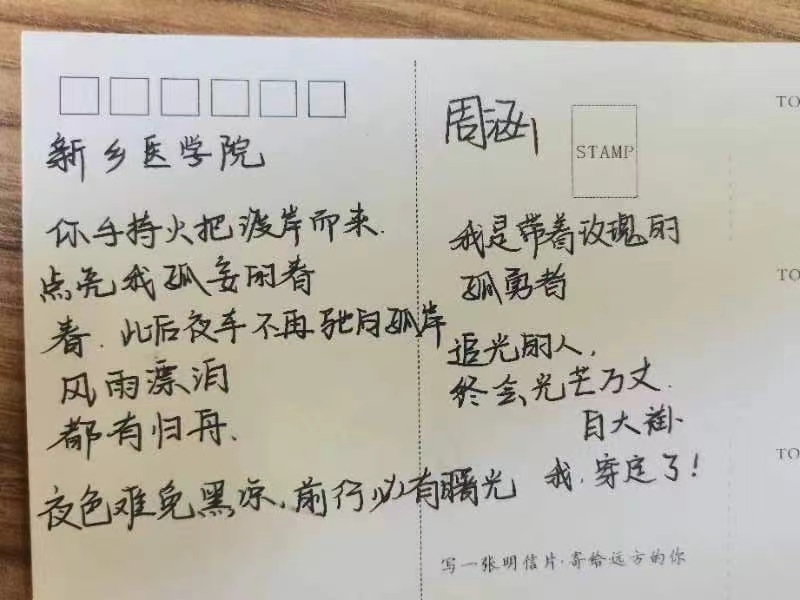 新乡医学院
你手持火把渡岸而来.
点亮我孤妄的春
春.此后夜车不再驰向孤岸
风雨漂泪
都有归舟.
夜色难免黑凉,前行必有曙光
周涵
STAMP
我是带着玫瑰的
孤勇者
追光的人,
终会光芒万丈.
白大褂
我,穿定了!
写一张明信片·寄给远方的你
TO
TO
TO